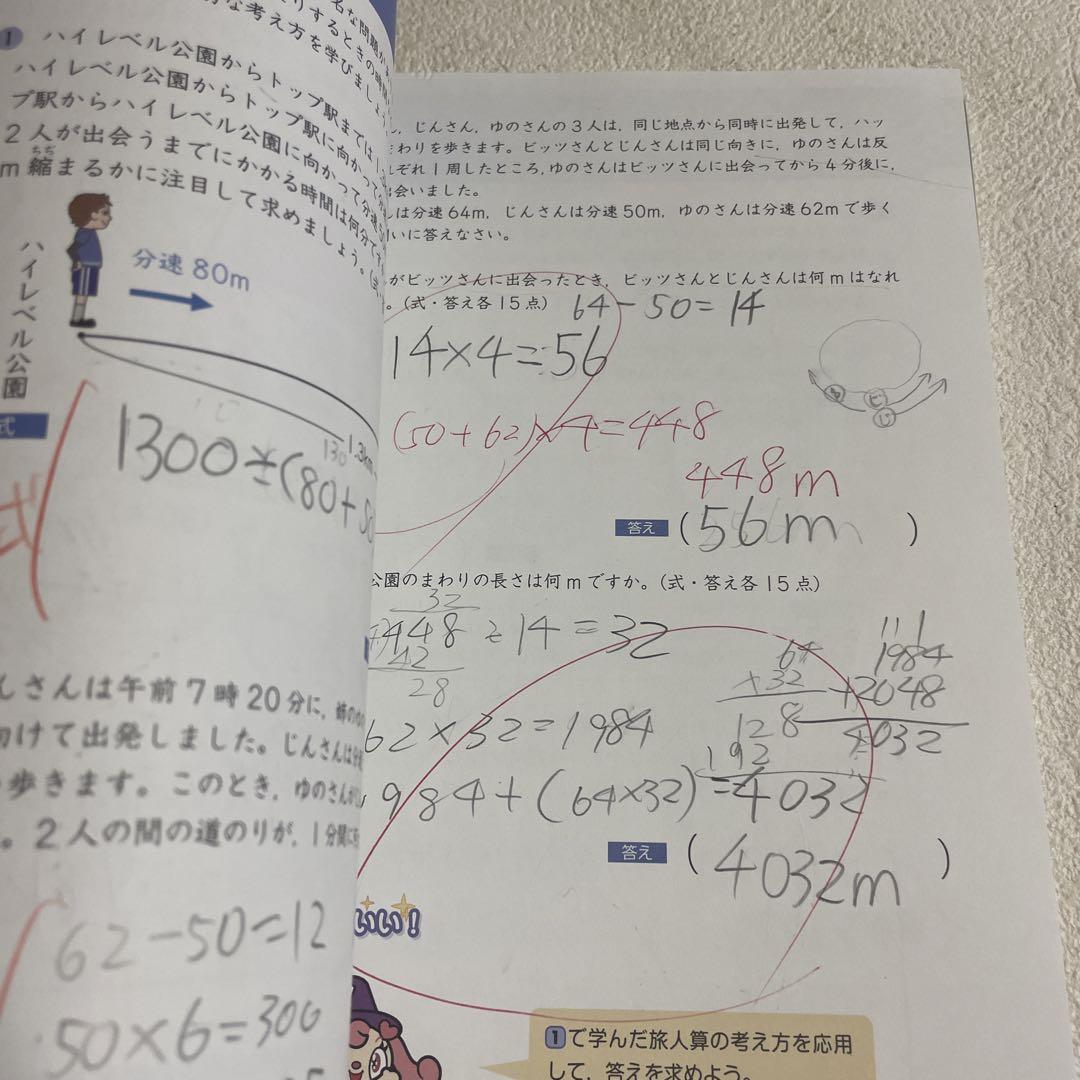 名な問題が
りするときの時間
な考え方を学びましょう
1 ハイレベル公園からトップ駅までは1
ハイレベル公園からトップ駅に向かって分
プ駅からハイレベル公園に向かって分速50
2人が出会うまでにかかる時間は何分で
m縮まるかに注目して求めましょう。(式
ちぢ
分速80m
ハイレベル公園
1.3km
130
式
1300÷(80+50
式
んさんは午前7時20分に,姉のゆ
向けて出発しました。じんさんは分
歩きます。このとき,ゆのさんが
。2人の間の道のりが,1分間に
62-50=12
50×6=300
ん,じんさん,ゆのさんの3人は,同じ地点から同時に出発して,ハッ
まわりを歩きます。ビッツさんとじんさんは同じ向きに,ゆのさんは反
ぞれ1周したところ,ゆのさんはビッツさんに出会ってから4分後に,
出会いました。
は分速64m,じんさんは分速50m,ゆのさんは分速62mで歩く
問いに答えなさい。
がビッツさんに出会ったとき,ビッツさんとじんさんは何mはなれ
。(式・答え各15点) 64-50=14
14×4=56
(50+62)×4=448
448m
答え (56m)
ゆ
ビ
じ
公園のまわりの長さは何mですか。(式・答え各15点)
32
448÷14=32
42
28
62×32=1984
64
×32
128
192
11 1
1984
+2048
4032
984+(64×32)=4032
答え (4032m)
いい!
1で学んだ旅人算の考え方を応用
して,答えを求めよう。